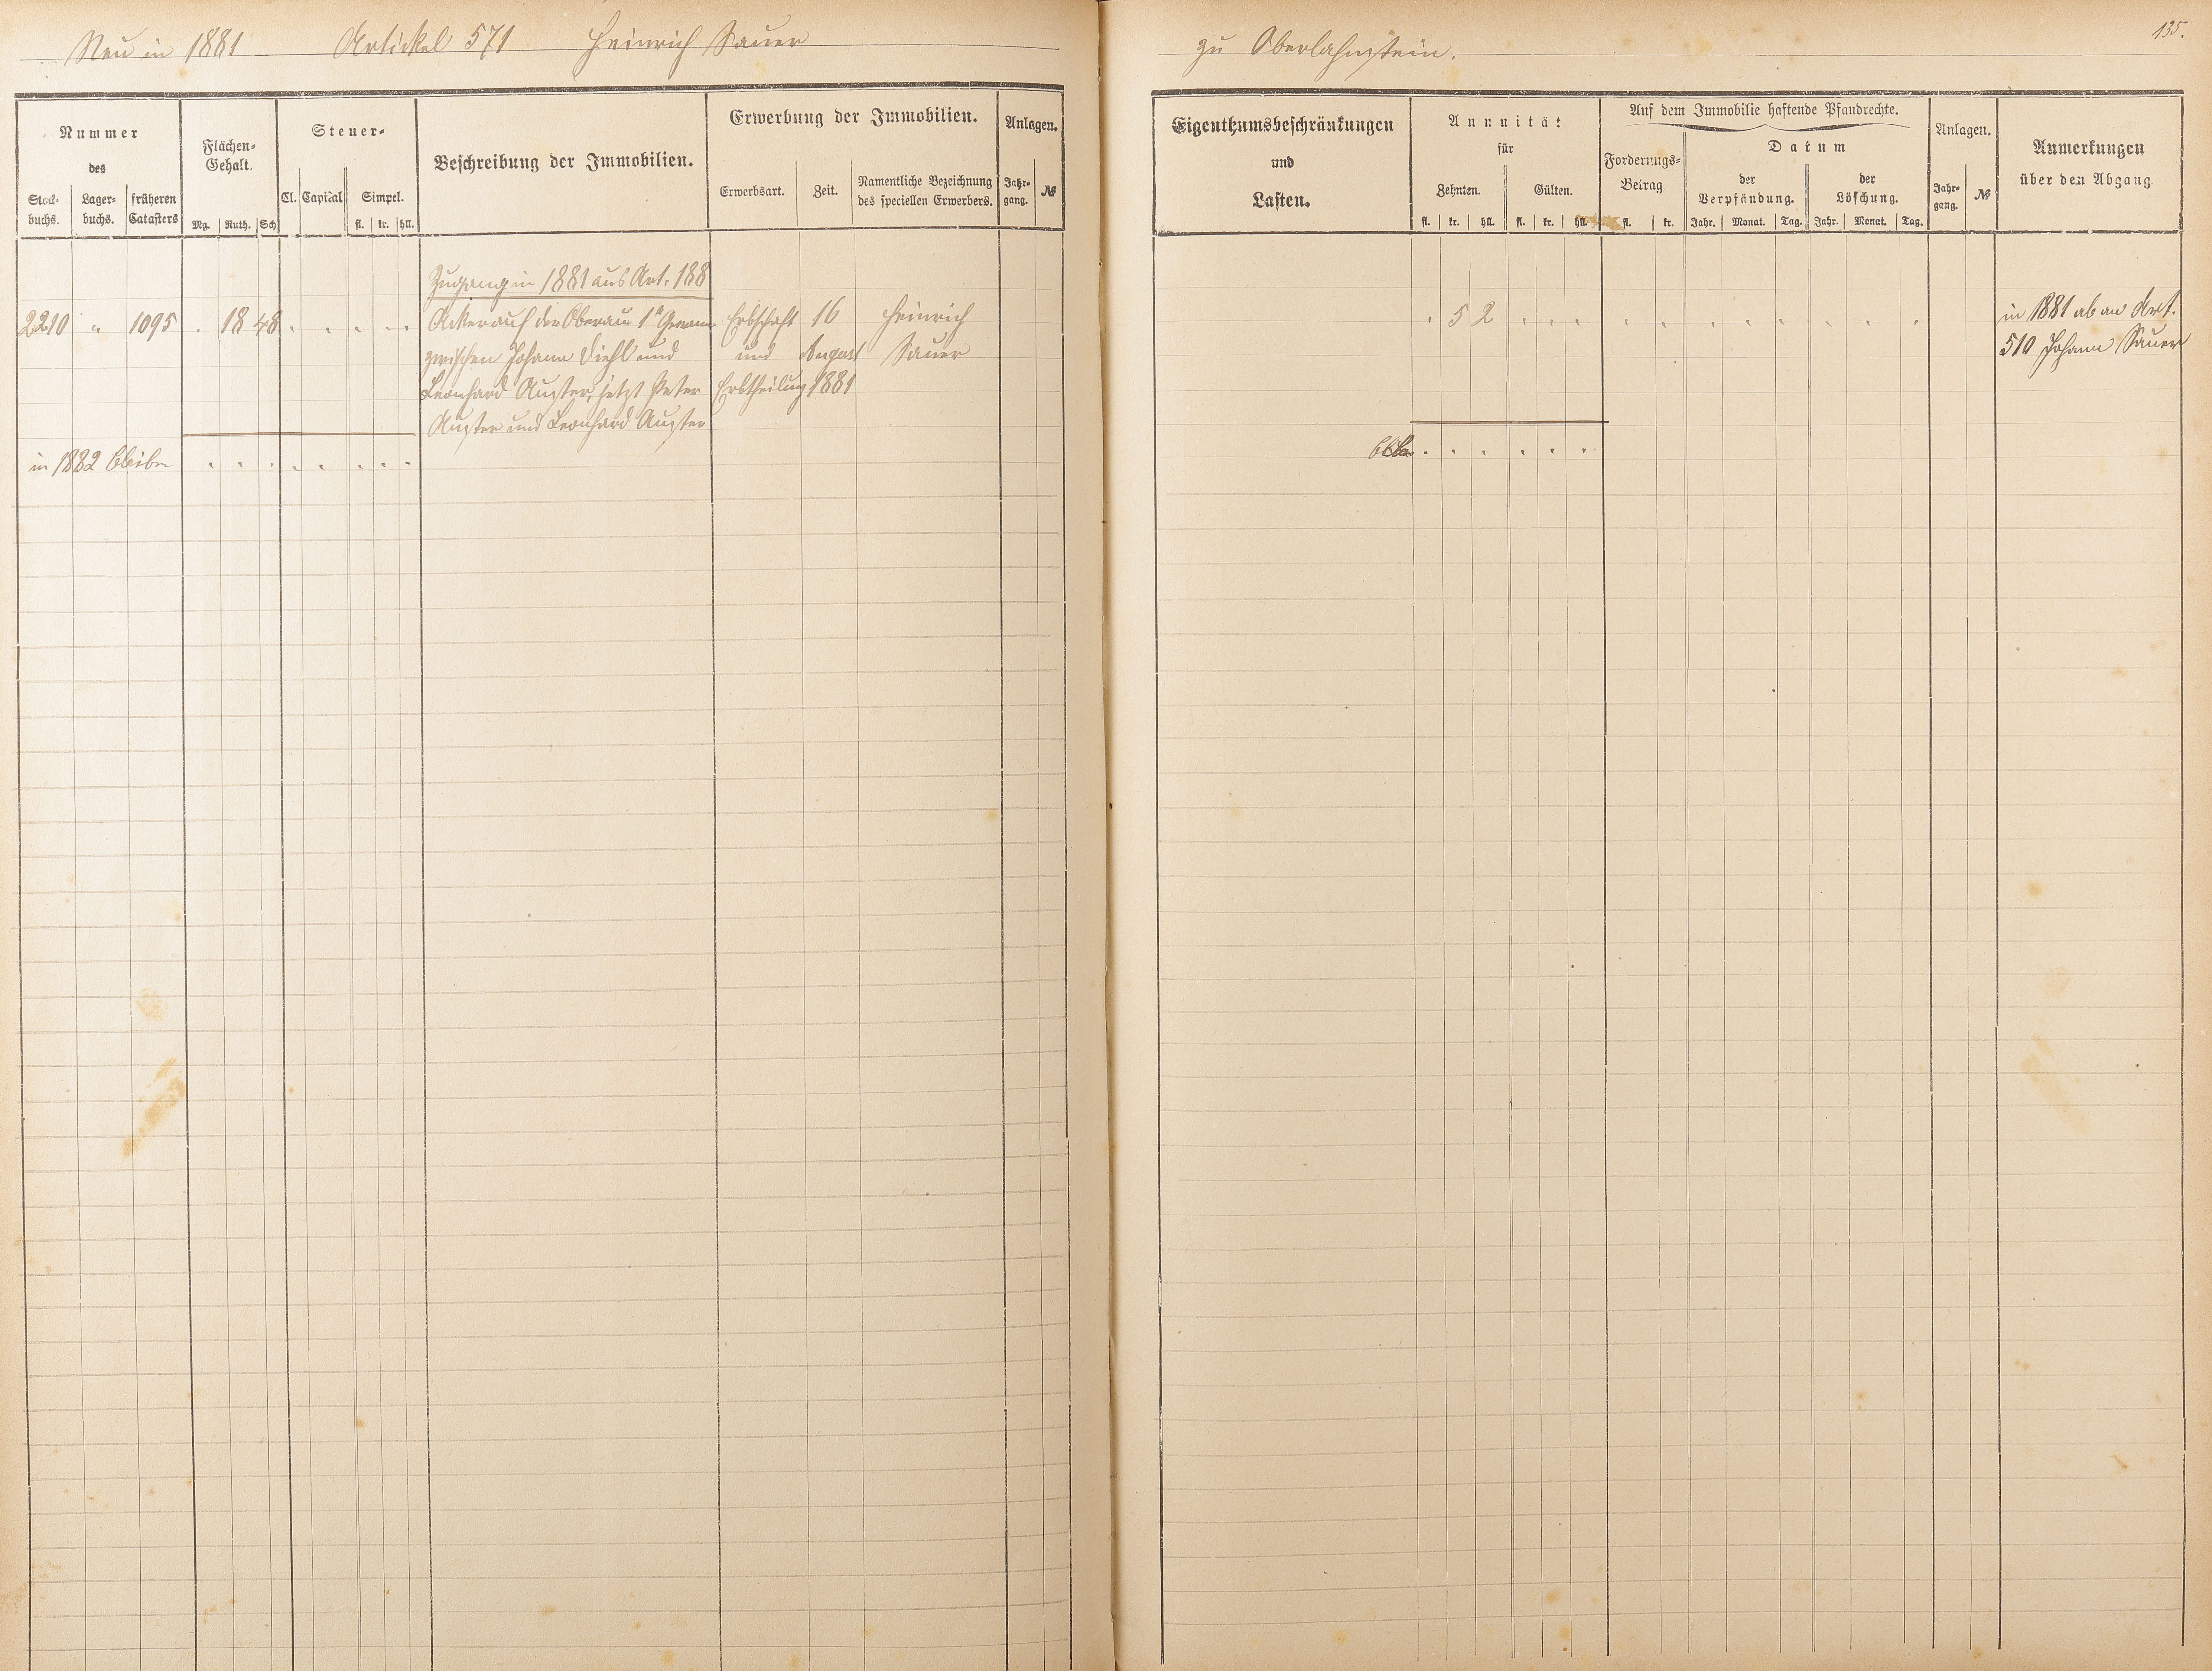 Neu in 1881 Artickel 571 Heinrich Sauer
zu Oberlahnstein.
135.
Nummer
des
Stock-
buchs.
Lager-
buchs.
früheren
Catasters
Flächen-
Gehalt.
Mg. Ruth. Sch
Steuer-
Cl. Capital Simpel.
fl. kr. hll.
Beschreibung der Immobilien.
Erwerbung der Immobilien.
Erwerbsart. Zeit.
Namentliche Bezeichnung
des speciellen Erwerbers.
Anlagen.
Jahr-
gang.
№
Eigenthumsbeschränkungen
und
Lasten.
Annuität
für
Zehnten. Gülten.
fl. kr. hll. fl. kr. hll.
Auf dem Immobilie haftende Pfandrechte.
Forderungs-
Betrag
fl. kr.
Datum
der
Verpfändung.
Jahr. Monat. Tag.
der
Löschung.
Jahr. Monat. Tag.
Anlagen.
Jahr-
gang.
№
Anmerkungen
über den Abgang.
Zugang in 1881 aus Art. 188
2210 " 1095 . 18 48 . . . . . Acker auf der Oberau 1r Gewann Erbschaft 16 Heinrich . 5 2 . . . in 1881 ab an Art.
zwischen Johann Diehl und und August Sauer 510 Johann Sauer
Leonhard Auster, jetzt Peter Erbtheilung 1881
Auster und Leonhard Auster
in 1882 bleiben . . . . . . . .